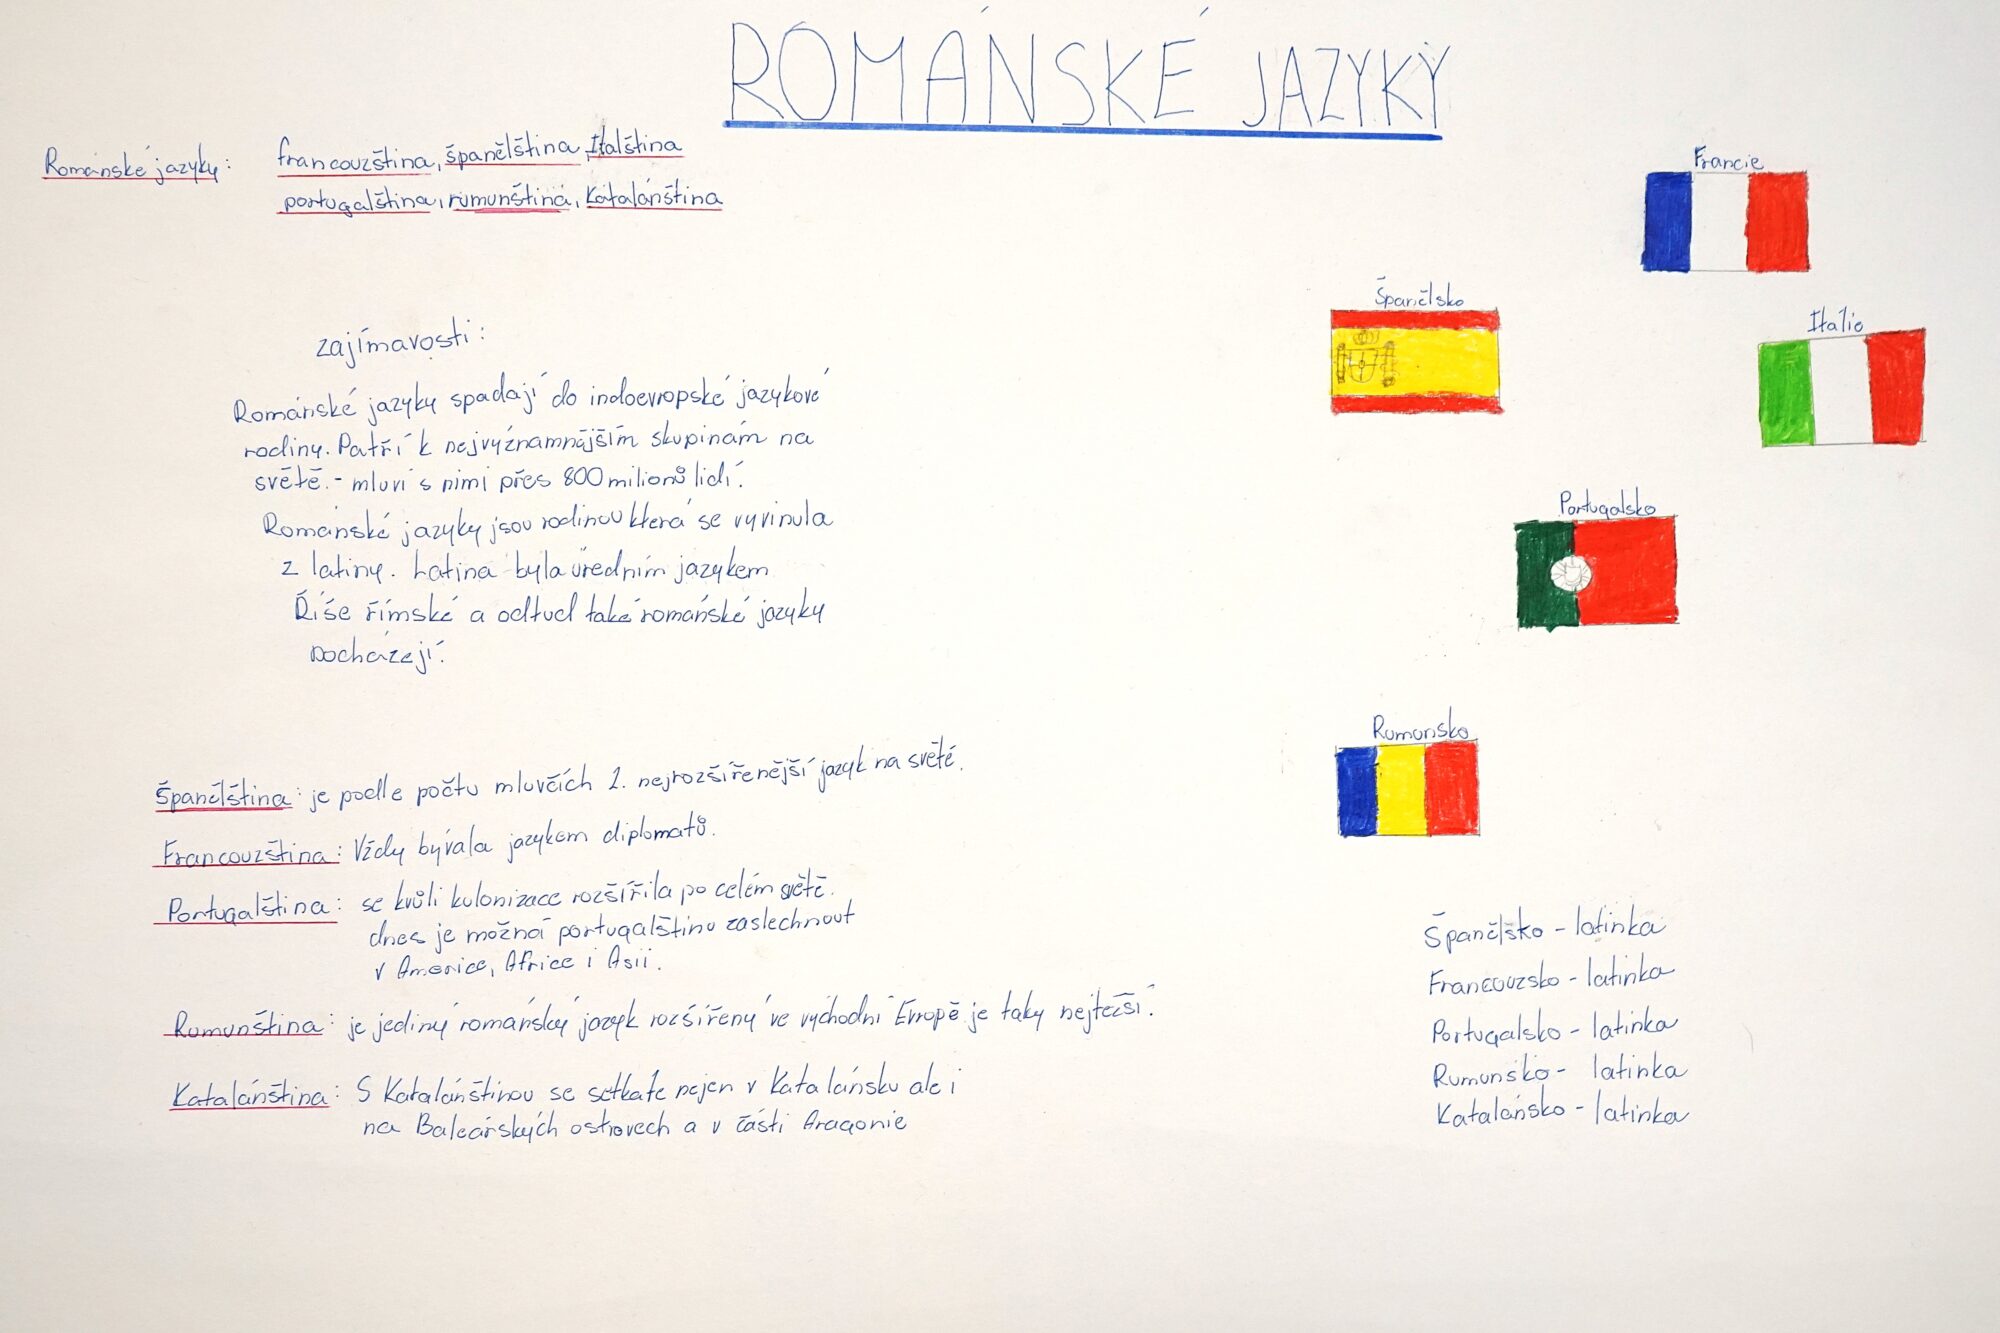 ROMÁNSKÉ JAZYKY
Románské jazyky: francouzština, španělština, Italština
portugalština, rumunština, Katalánština
zajímavosti:
Románské jazyky spadají do indoevropské jazykové
rodiny. Patří k nejvýznamnějším skupinám na
světě. - mluví s nimi přes 800 milionů lidí.
Románské jazyky jsou rodinou která se vyvinula
z latiny. Latina byla úředním jazykem
Říše římské a odtud také románské jazyky
pocházejí.
Španělština: je podle počtu mluvčích 2. nejrozšířenější jazyk na světě.
Francouzština: Vždy bývala jazykem diplomatů.
Portugalština: se kvůli kolonizace rozšířila po celém světě.
dnes je možná portugalštinu zaslechnout
v Americe, Africe i Asii.
Rumunština: je jediný románský jazyk rozšířený ve východní Evropě je taky nejtežší.
Katalánština: S Katalánštinou se setkáte nejen v Katalánsku ale i
na Baleárských ostrovech a v části Aragonie
Francie
Španělsko
Itálie
Portugalsko
Rumunsko
Španělško - latinka
Francouzsko - latinka
Portugalsko - latinka
Rumunsko - latinka
Katalánsko - latinka